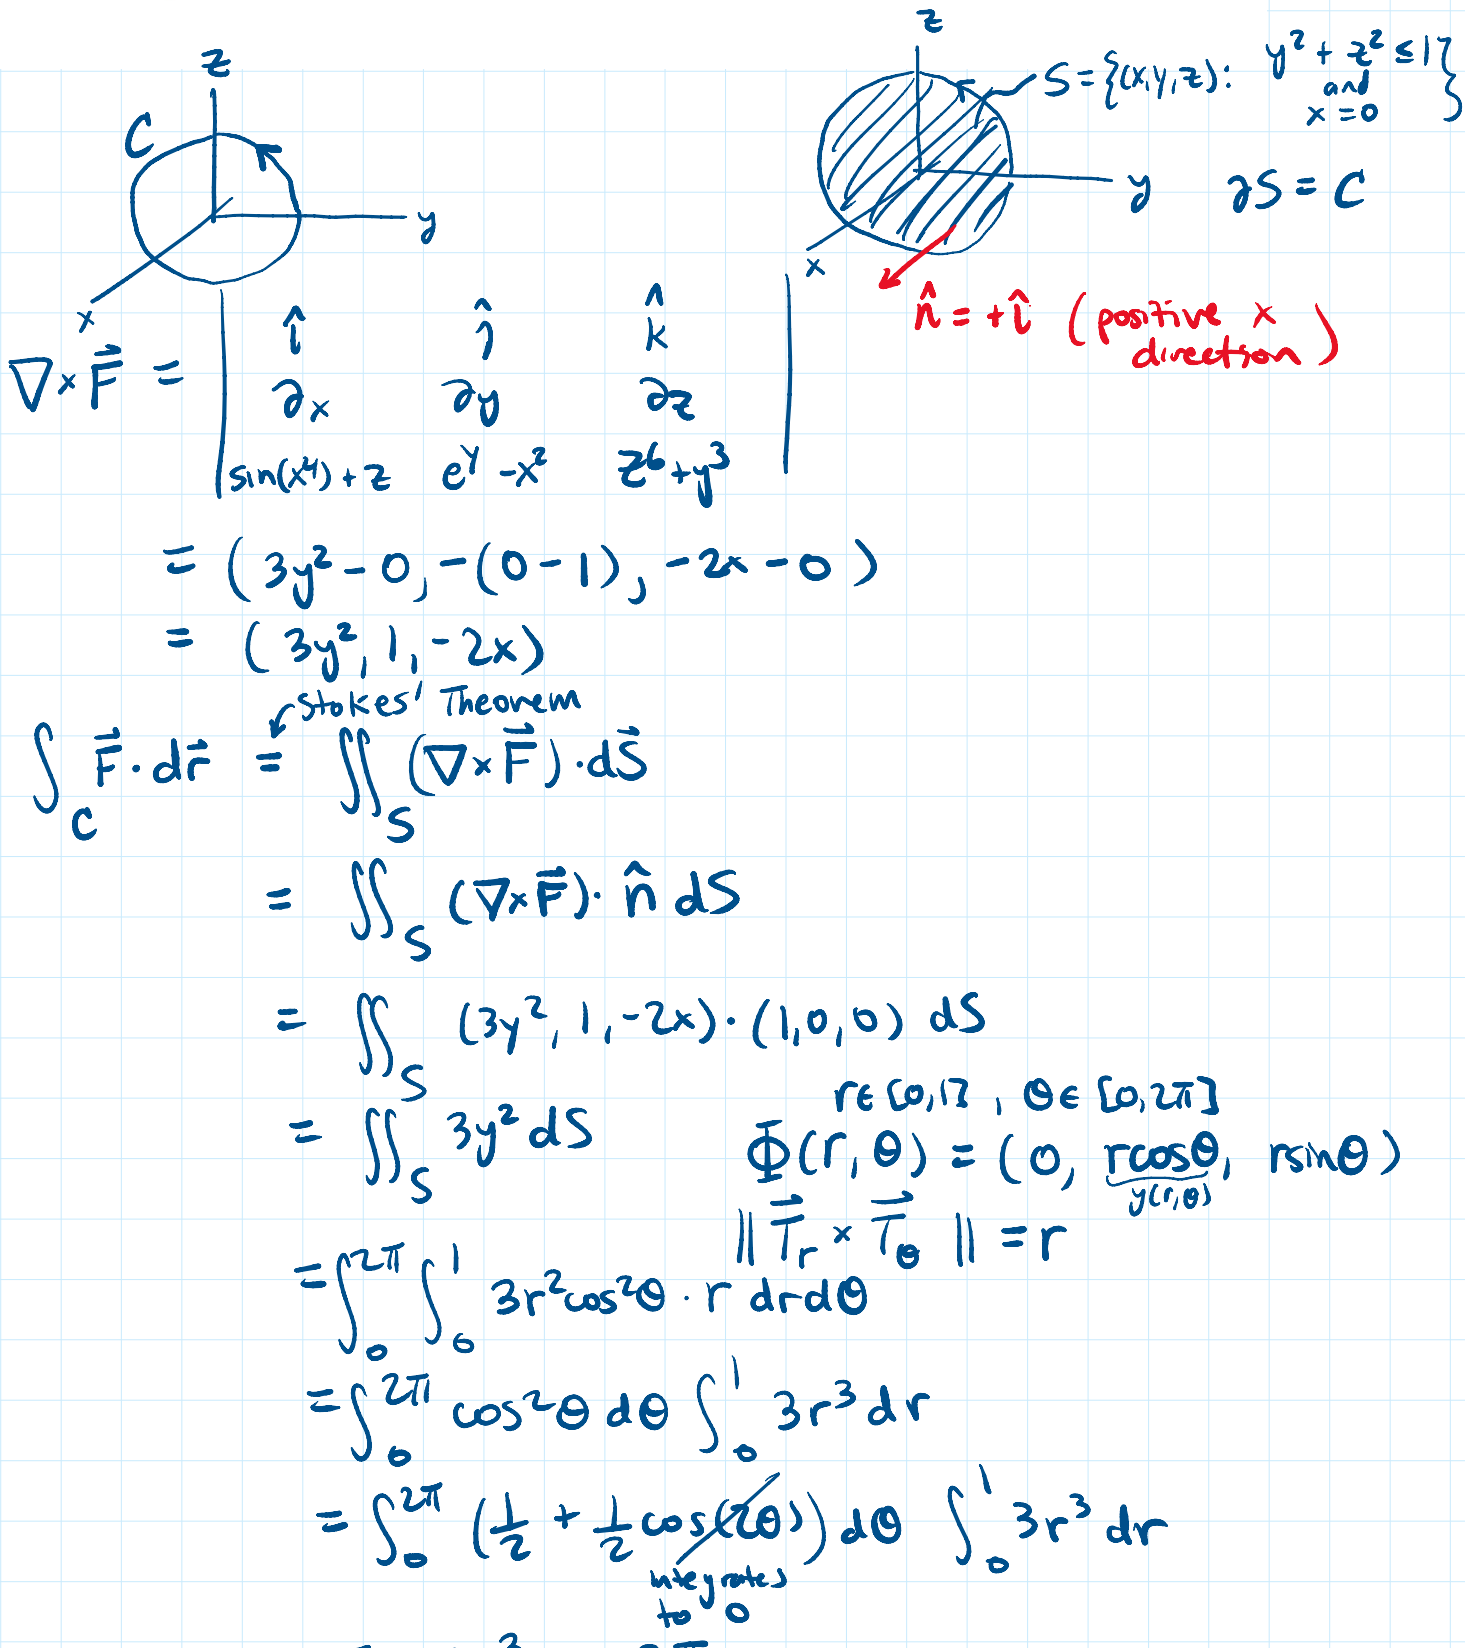 z
C
y
x
z
S = {(x,y,z): y² + z² ≤ 1 and x = 0}
y
∂S = C
x
n̂ = +î (positive x direction)
∇×F⃗ = | î ĵ k̂ |
∂x ∂y ∂z
sin(x⁴)+z e^y -x² z⁶+y³
= (3y²-0, -(0-1), -2x-0)
= (3y², 1, -2x)
Stokes' Theorem
∫_C F⃗·dr⃗ = ∬_S (∇×F⃗)·dS⃗
= ∬_S (∇×F⃗)·n̂ dS
= ∬_S (3y², 1, -2x)·(1,0,0) dS
r∈[0,1], θ∈[0,2π]
= ∬_S 3y² dS
Φ(r,θ) = (0, rcosθ, rsinθ)
y(r,θ)
‖T⃗_r × T⃗_θ‖ = r
= ∫_0^2π ∫_0^1 3r²cos²θ · r drdθ
= ∫_0^2π cos²θ dθ ∫_0^1 3r³ dr
= ∫_0^2π (1/2 + 1/2 cos(2θ)) dθ ∫_0^1 3r³ dr
integrates
to 0